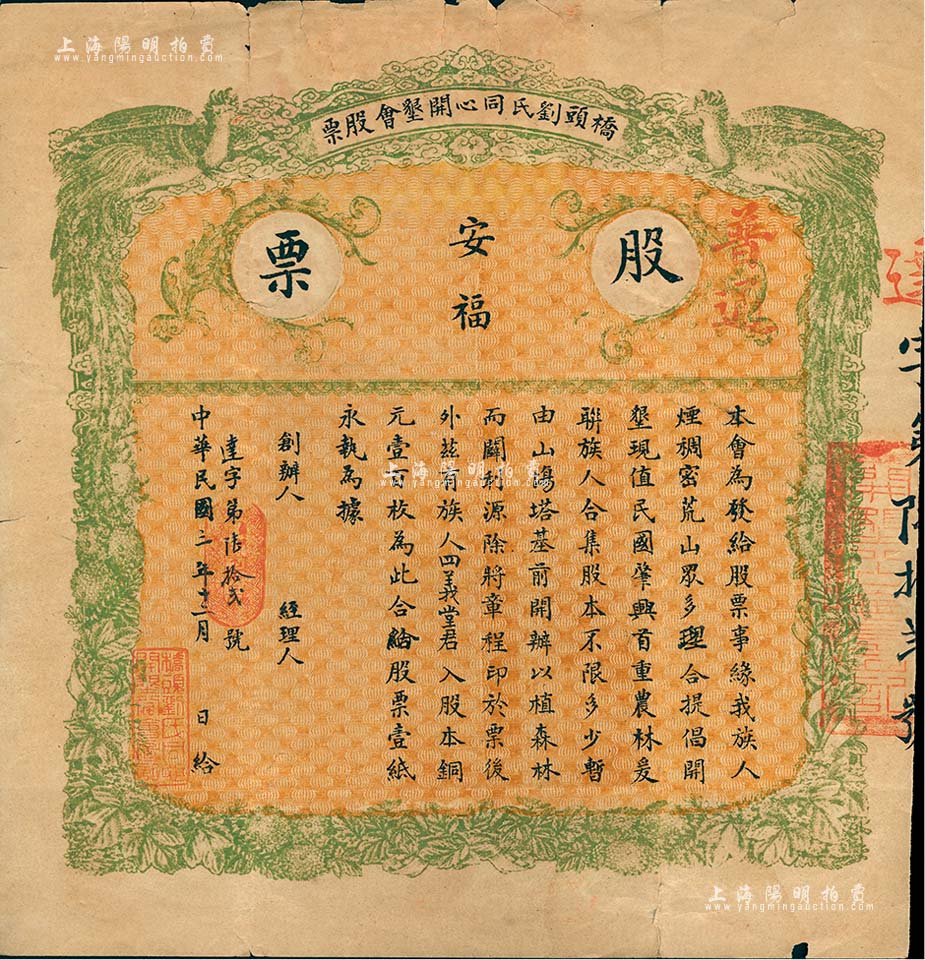 上海陽明拍賣
www.yangmingauction.com
橋頭劉氏同心開墾會股票
股
票
安福
善士
本會為發給股票事緣我族人
煙稠密荒山眾多理合提倡開
墾現值民國肇興首重農林爰
聯族人合集股本不限多少暫
由山場塔基前開辦以植森林
而闢利源除將章程印於票後
外茲有族人四義堂君入股本銅
元壹百枚為此合給股票壹紙
永執為據
創辦人
經理人
達字第陸拾弍號
中華民國三年十二月 日給
達字第陸拾弍號
上海陽明拍賣
www.yangmingauction.com
上海陽明拍賣
www.yangmingauction.com